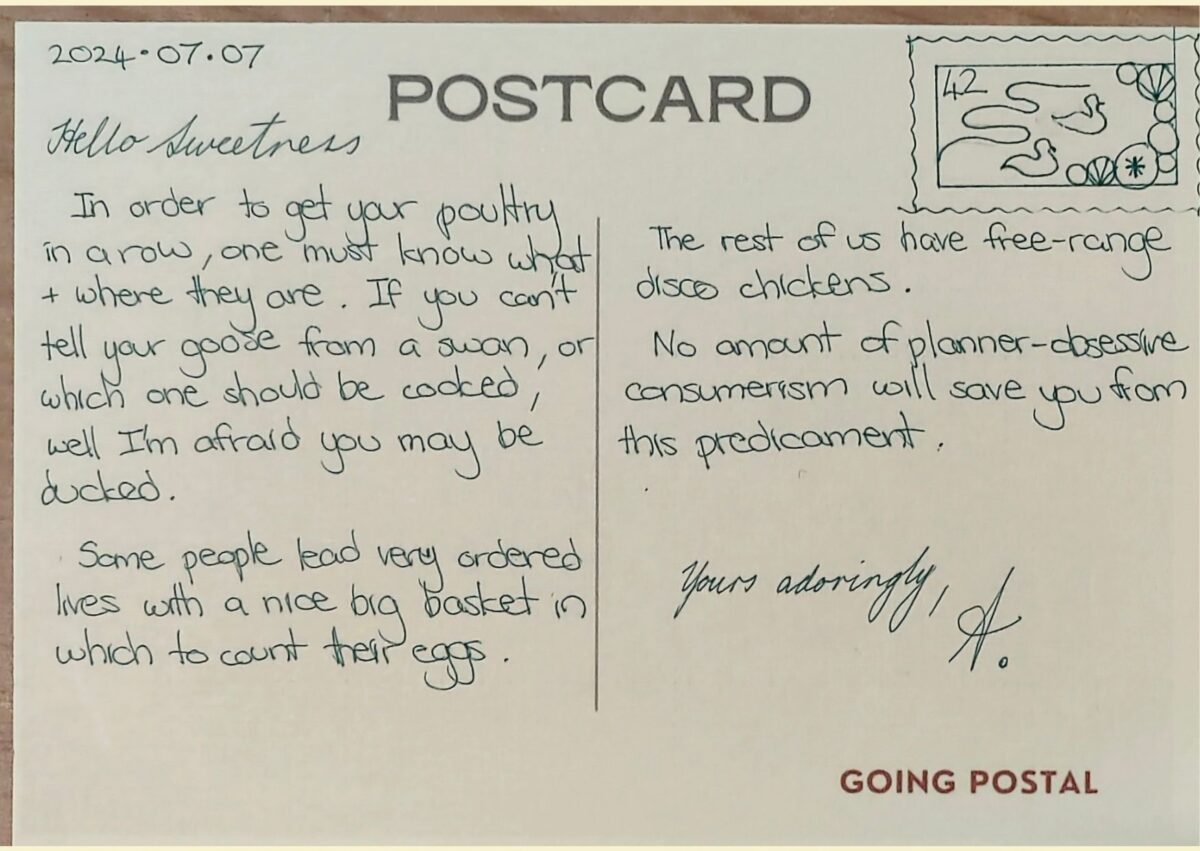 2024.07.07
POSTCARD
42
Hello Sweetness
In order to get your poultry
in a row, one must know what
+ where they are. If you can't
tell your goose from a swan, or
which one should be cooked,
well I'm afraid you may be
ducked.
Some people lead very ordered
lives with a nice big basket in
which to count their eggs.
The rest of us have free-range
disco chickens.
No amount of planner-obsessive
consumerism will save you from
this predicament.
Yours adoringly,
A.
GOING POSTAL